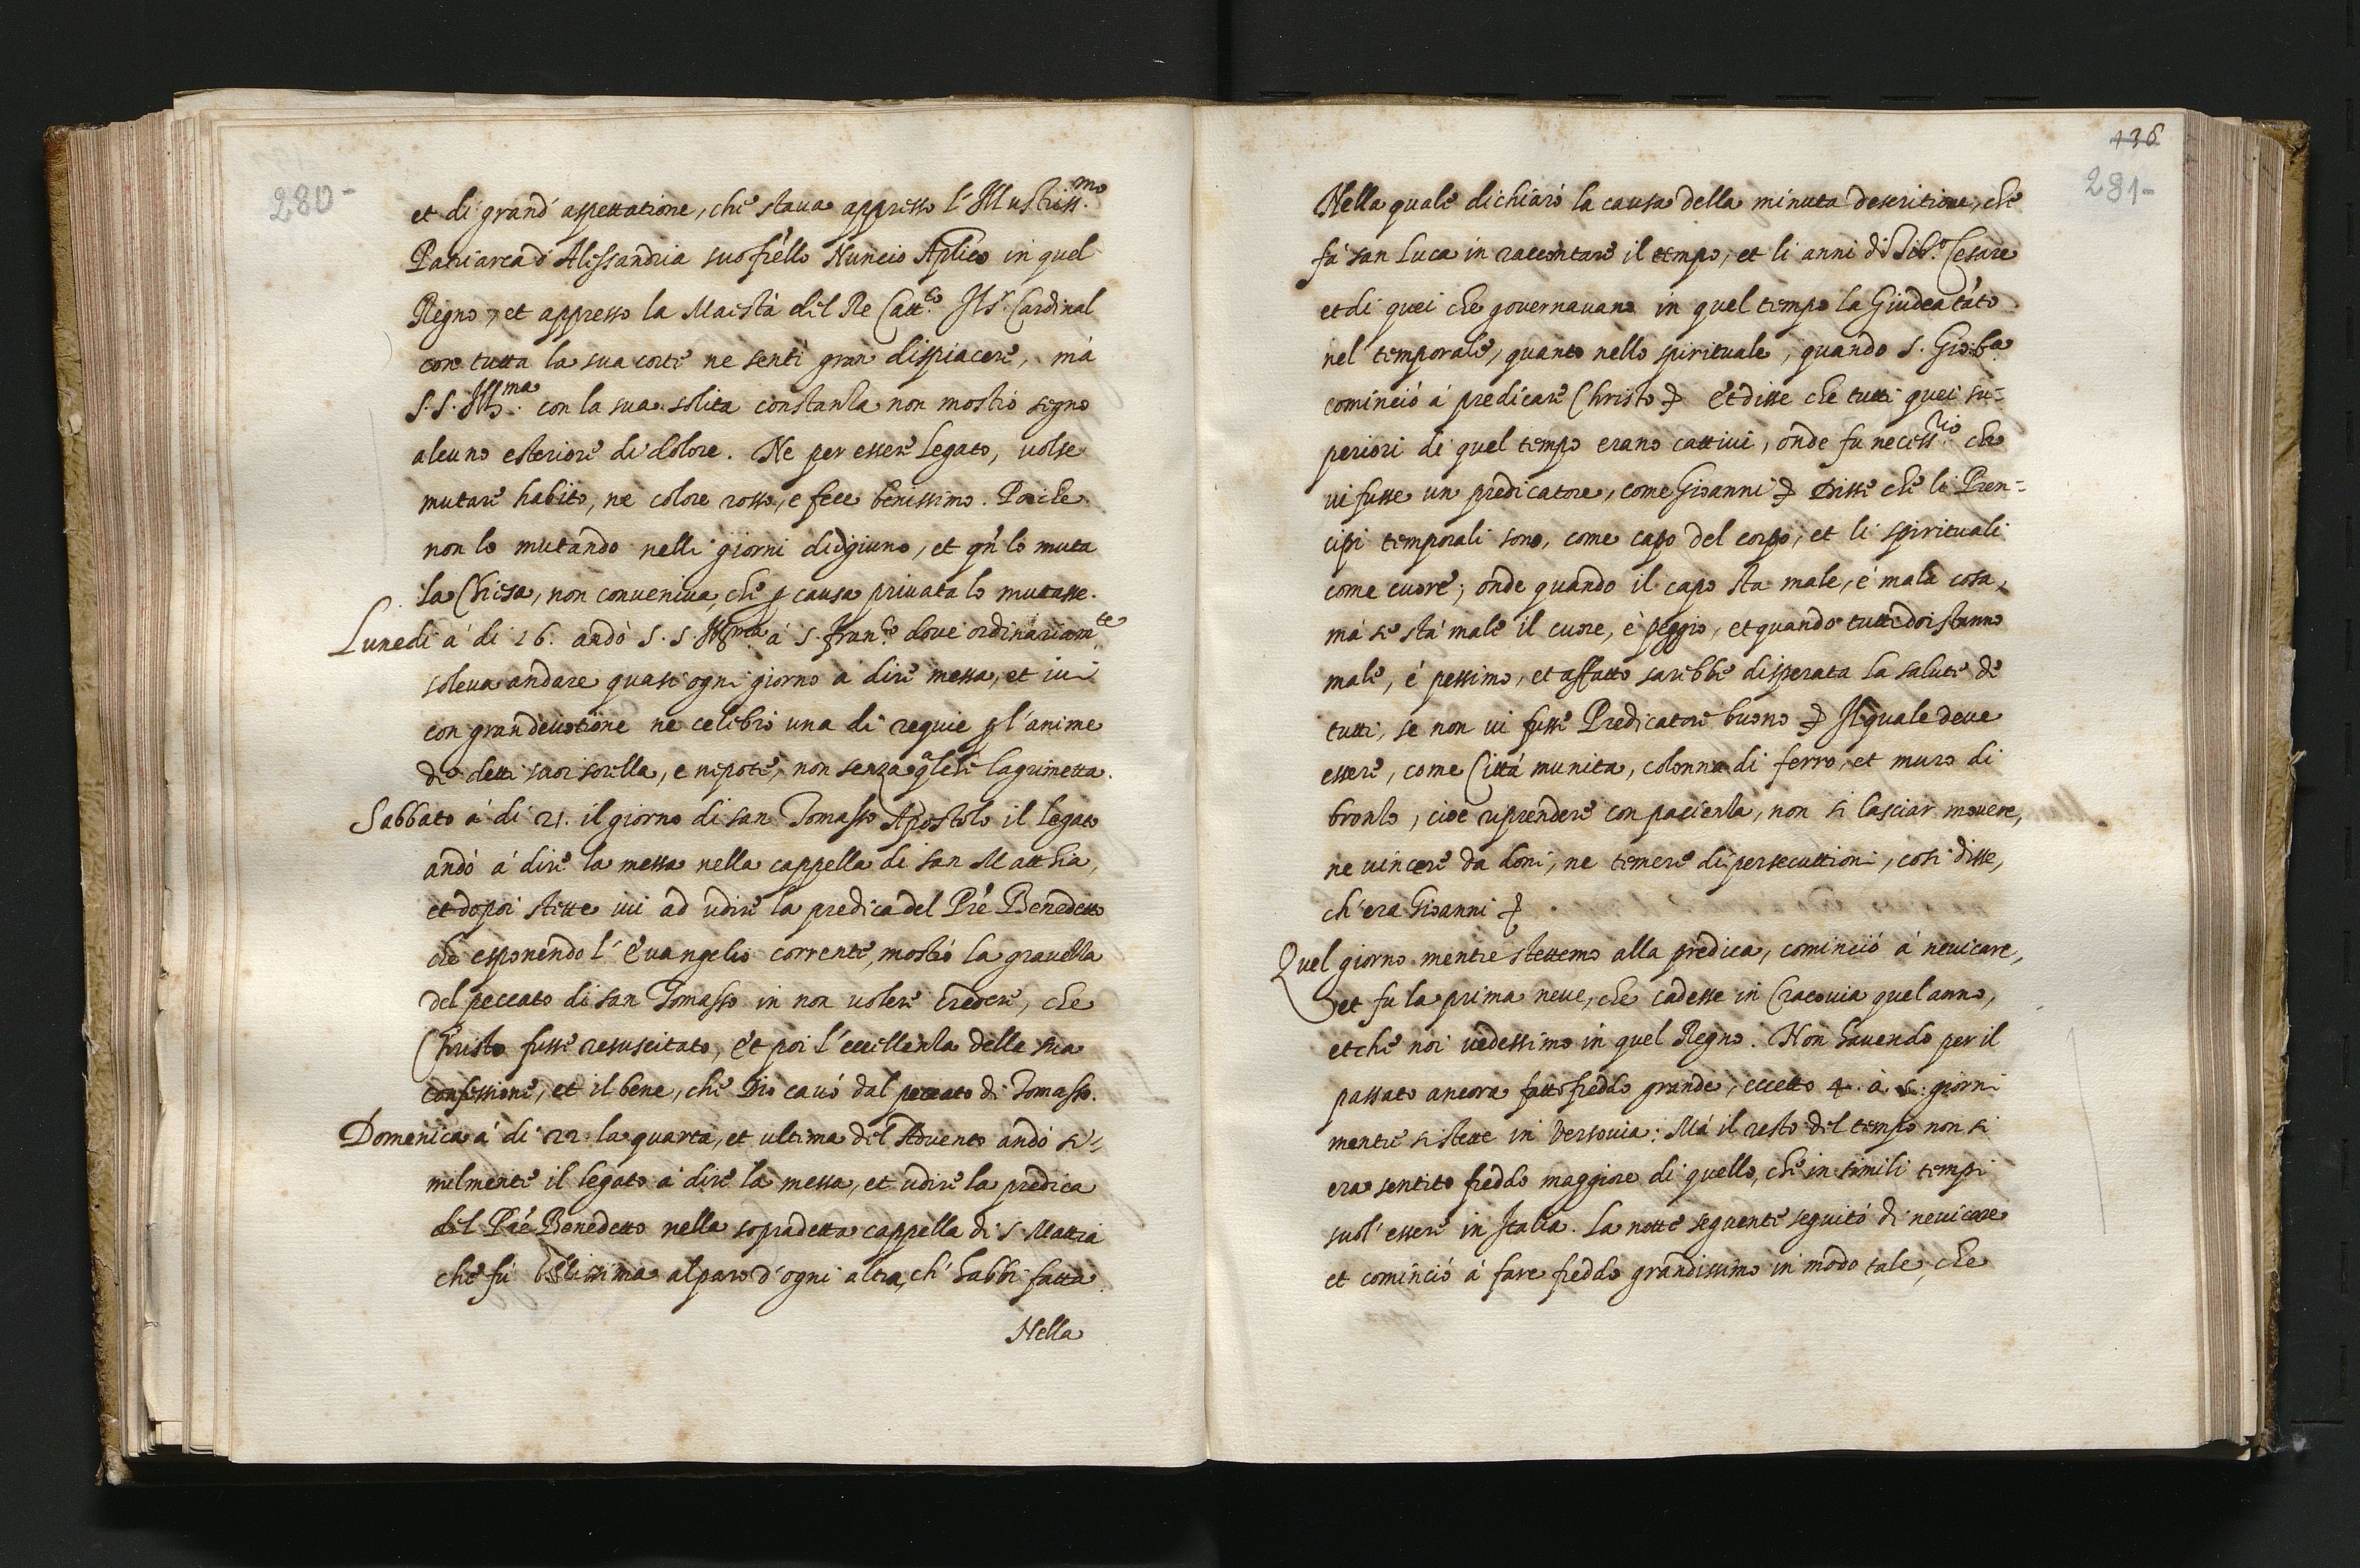 280-
et di grand' aspettatione, che staua appresso l'Illustriss.mo
Patriarca d'Alessandria suo frello Nuncio Aplico in quel
Regno, et appresso la Maestà del Re Catt.co Il s.r Cardinal
con tutta la sua corte ne sentì gran dispiacere, mà
S. S. Ill.ma con la sua solita constanza non mostrò segno
alcuno esteriore di dolore. Ne per essere Legato, uolse
mutare habito, nè colore rosso, e fece benissimo. Poiche
non lo mutando nelli giorni di digiuno, et qñ lo muta
la Chiesa, non conueniua, che p causa priuata lo mutasse.
Lunedi à di 16. andò S. S. Ill.ma à S. Fran.co doue ordinariam.te
soleua andare quasi ogni giorno à dire messa, et iui
con gran deuotione ne celebrò una di requie p l'anime
de detti suoi sorella, e nepote, non senza qalche lagrimetta.
Sabbato à di 21. il giorno di san Tomasso Apostolo il Legato
andò à dire la messa nella cappella di san Matthia,
et dopoi stette iui ad udire la predica del Pre Benedetto
che esponendo l'Euangelio corrente, mostrò la grauezza
del peccato di san Tomasso in non uolere credere, che
Christo fusse resuscitato, et poi l'eccellenza della sua
confessione, et il bene, che Dio cauò dal peccato di Tomasso.
Domenica à di 22 la quarta, et ultima del Aduento andò si-
milmente il legato à dire la messa, et udire la predica
del Pre Benedetto nella sopradetta cappella di S. Mattia
che fù bellissima al paro d'ogni altra, ch'habbi fatta.
Nella
136
281-
Nella quale dichiarò la causa della minuta descritione, che
fà san Luca in raccontare il tempo, et li anni di Tib.o Cesare
et di quei che gouernauano in quel tempo la Giudea tāto
nel temporale, quanto nello spirituale, quando S. Gio: ba
cominciò à predicare Christo Et disse che tutti quei su-
periori di quel tempo erano cattiui, onde fu necess.rio che
ui fusse un predicatore, come Gioanni Disse che li Pren-
cipi temporali sono, come capo del corpo, et li spirituali
come cuore; onde quando il capo sta male, è mala cosa,
mà se stà male il cuore, è peggio, et quando tutti doi stanno
male, è pessimo, et affatto sarebbe disperata la salute de
tutti, se non ui fusse Predicatore buono Il quale deue
essere, come Città munita, colonna di ferro, et muro di
bronzo, cioè riprendere con pacienza, non si lasciar mouere,
ne uincere da doni, ne temere di persecuttioni, così disse,
ch'era Gioanni
Quel giorno mentre stettemo alla predica, cominciò à neuicare,
et fu la prima neue, che cadesse in Cracouia quel'anno,
et che noi uedessimo in quel Regno. Non hauendo per il
passato ancora fatto freddo grande, eccetto 4. à giorni
mentre si stette in Versouia: Mà il resto del tempo non si
era sentito freddo maggiore di quello, che in simili tempi
suol' essere in Italia. La notte seguente seguitò di neuicare
et cominciò à fare freddo grandissimo in modo tale, che